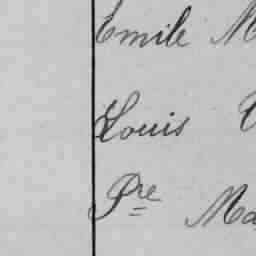 Emile M
Louis
Pre Ma